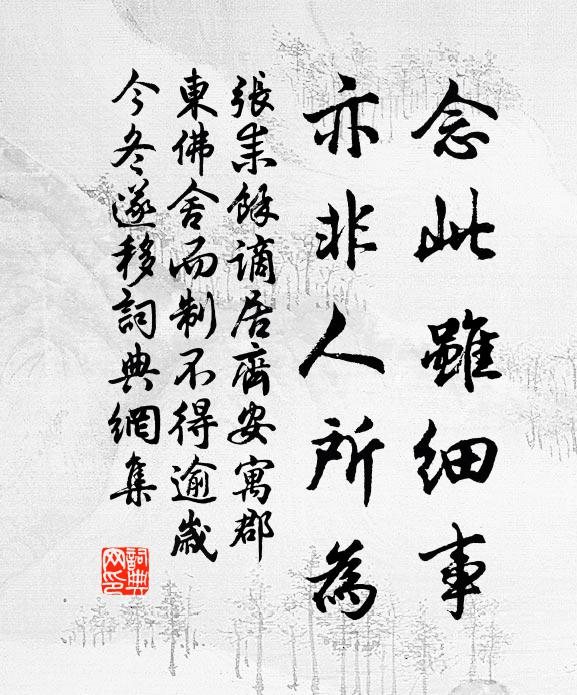 念此雖細事
亦非人所為
張耒餘謫居齊安寓郡
東佛舍而制不得逾歲
今冬遂移詞典網集
詞典网印